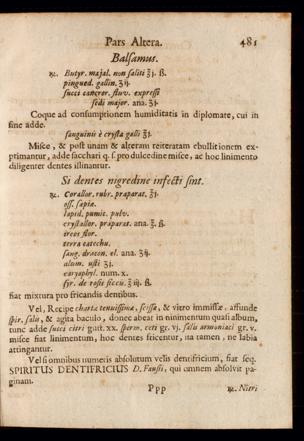 Pars Altera. 481
Balsamus.
℞. Butyr. majal. non saliti ℥j. ß.
pingued. gallin. ℥ij.
succi cancror. fluv. expressi
sedi major. ana. ℥j.
Coque ad consumptionem humiditatis in diplomate, cui in
fine adde.
sanguinis è crysta galli ℥j.
Misce, & post unam & alteram reiteratam ebullitionem ex-
primantur, adde sacchari q. s. pro dulcedine misce, ac hoc linimento
diligenter dentes illinantur.
Si dentes nigredine infecti sint.
℞. Corallor. rubr. præparat. ℥j.
oss. sæpiæ.
lapid. pumic. pulv.
crystallor. præparat. ana. ℥. ß.
ireos flor.
terra catechu.
sang. dracon. el. ana. ʒij.
alum. usti ʒj.
caryophyl. num. x.
syr. de rosis siccis. ℥iij. ß.
fiat mixtura pro fricandis dentibus.
Vel, Recipe charta tenuissimæ, scissæ, & vitro immissæ, affunde
spir. salis, & agita baculo, donec abeat in nimentum quasi album,
tunc adde succi citri gutt. xx. sperm. ceti gr. vj. salis armoniaci gr. v.
misce fiat linimentum, hoc dentes fricentur, na tamen, ne labia
attingantur.
Vel si omnibus numeris absolutum velis dentifricium, fiat seq.
SPIRITUS DENTIFRICIUS D. Fausti, qui omnem absolvit pa-
ginam.
Ppp ℞. Nitri